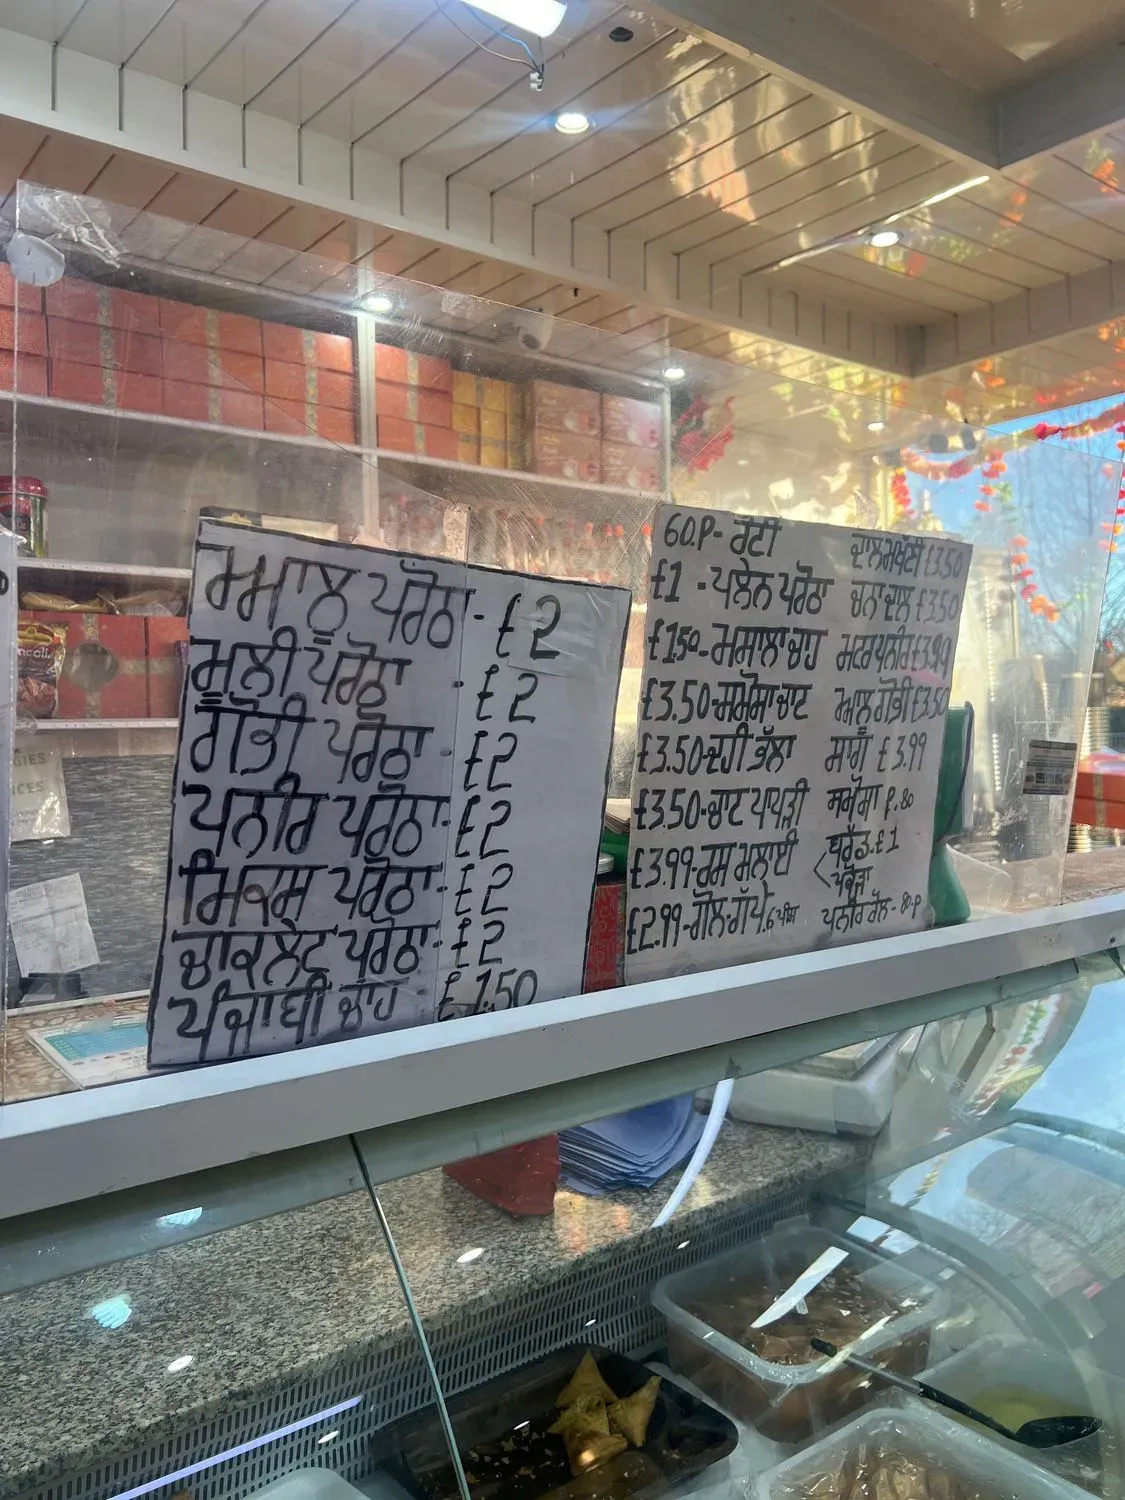 ਆਲੂ ਪਰੌਠਾ - £2
ਮੂਲੀ ਪਰੌਠਾ - £2
ਗੋਭੀ ਪਰੌਠਾ - £2
ਪਨੀਰ ਪਰੌਠਾ - £2
ਮਿਕਸ ਪਰੌਠਾ - £2
ਚਾਕਲੇਟ ਪਰੌਠਾ - £2
ਪੰਜਾਬੀ ਚਾਹ - £1.50
60.P - ਰੋਟੀ
£1 - ਪਲੇਨ ਪਰੌਠਾ
£1.50 - ਮਸਾਲਾ ਚਾਹ
£3.50 - ਸਮੋਸਾ ਚਾਟ
£3.50 - ਦਹੀ ਭੱਲਾ
£3.50 - ਚਾਟ ਪਾਪੜੀ
£3.99 - ਰਸ ਮਲਾਈ
£2.99 - ਗੋਲ ਗੱਪੇ 6 ਪੀਸ
ਦਾਲ ਮਖੱਣੀ £3.50
ਚਨਾ ਦਾਲ £3.50
ਮਟਰ ਪਨੀਰ £3.99
ਆਲੂ ਗੋਭੀ £3.50
ਸਾਗ £3.99
ਸਮੋਸਾ P.80
ਬਰੈੱਡ £1
ਪਕੌੜਾ
ਪਨੀਰ ਰੋਲ - 80.P